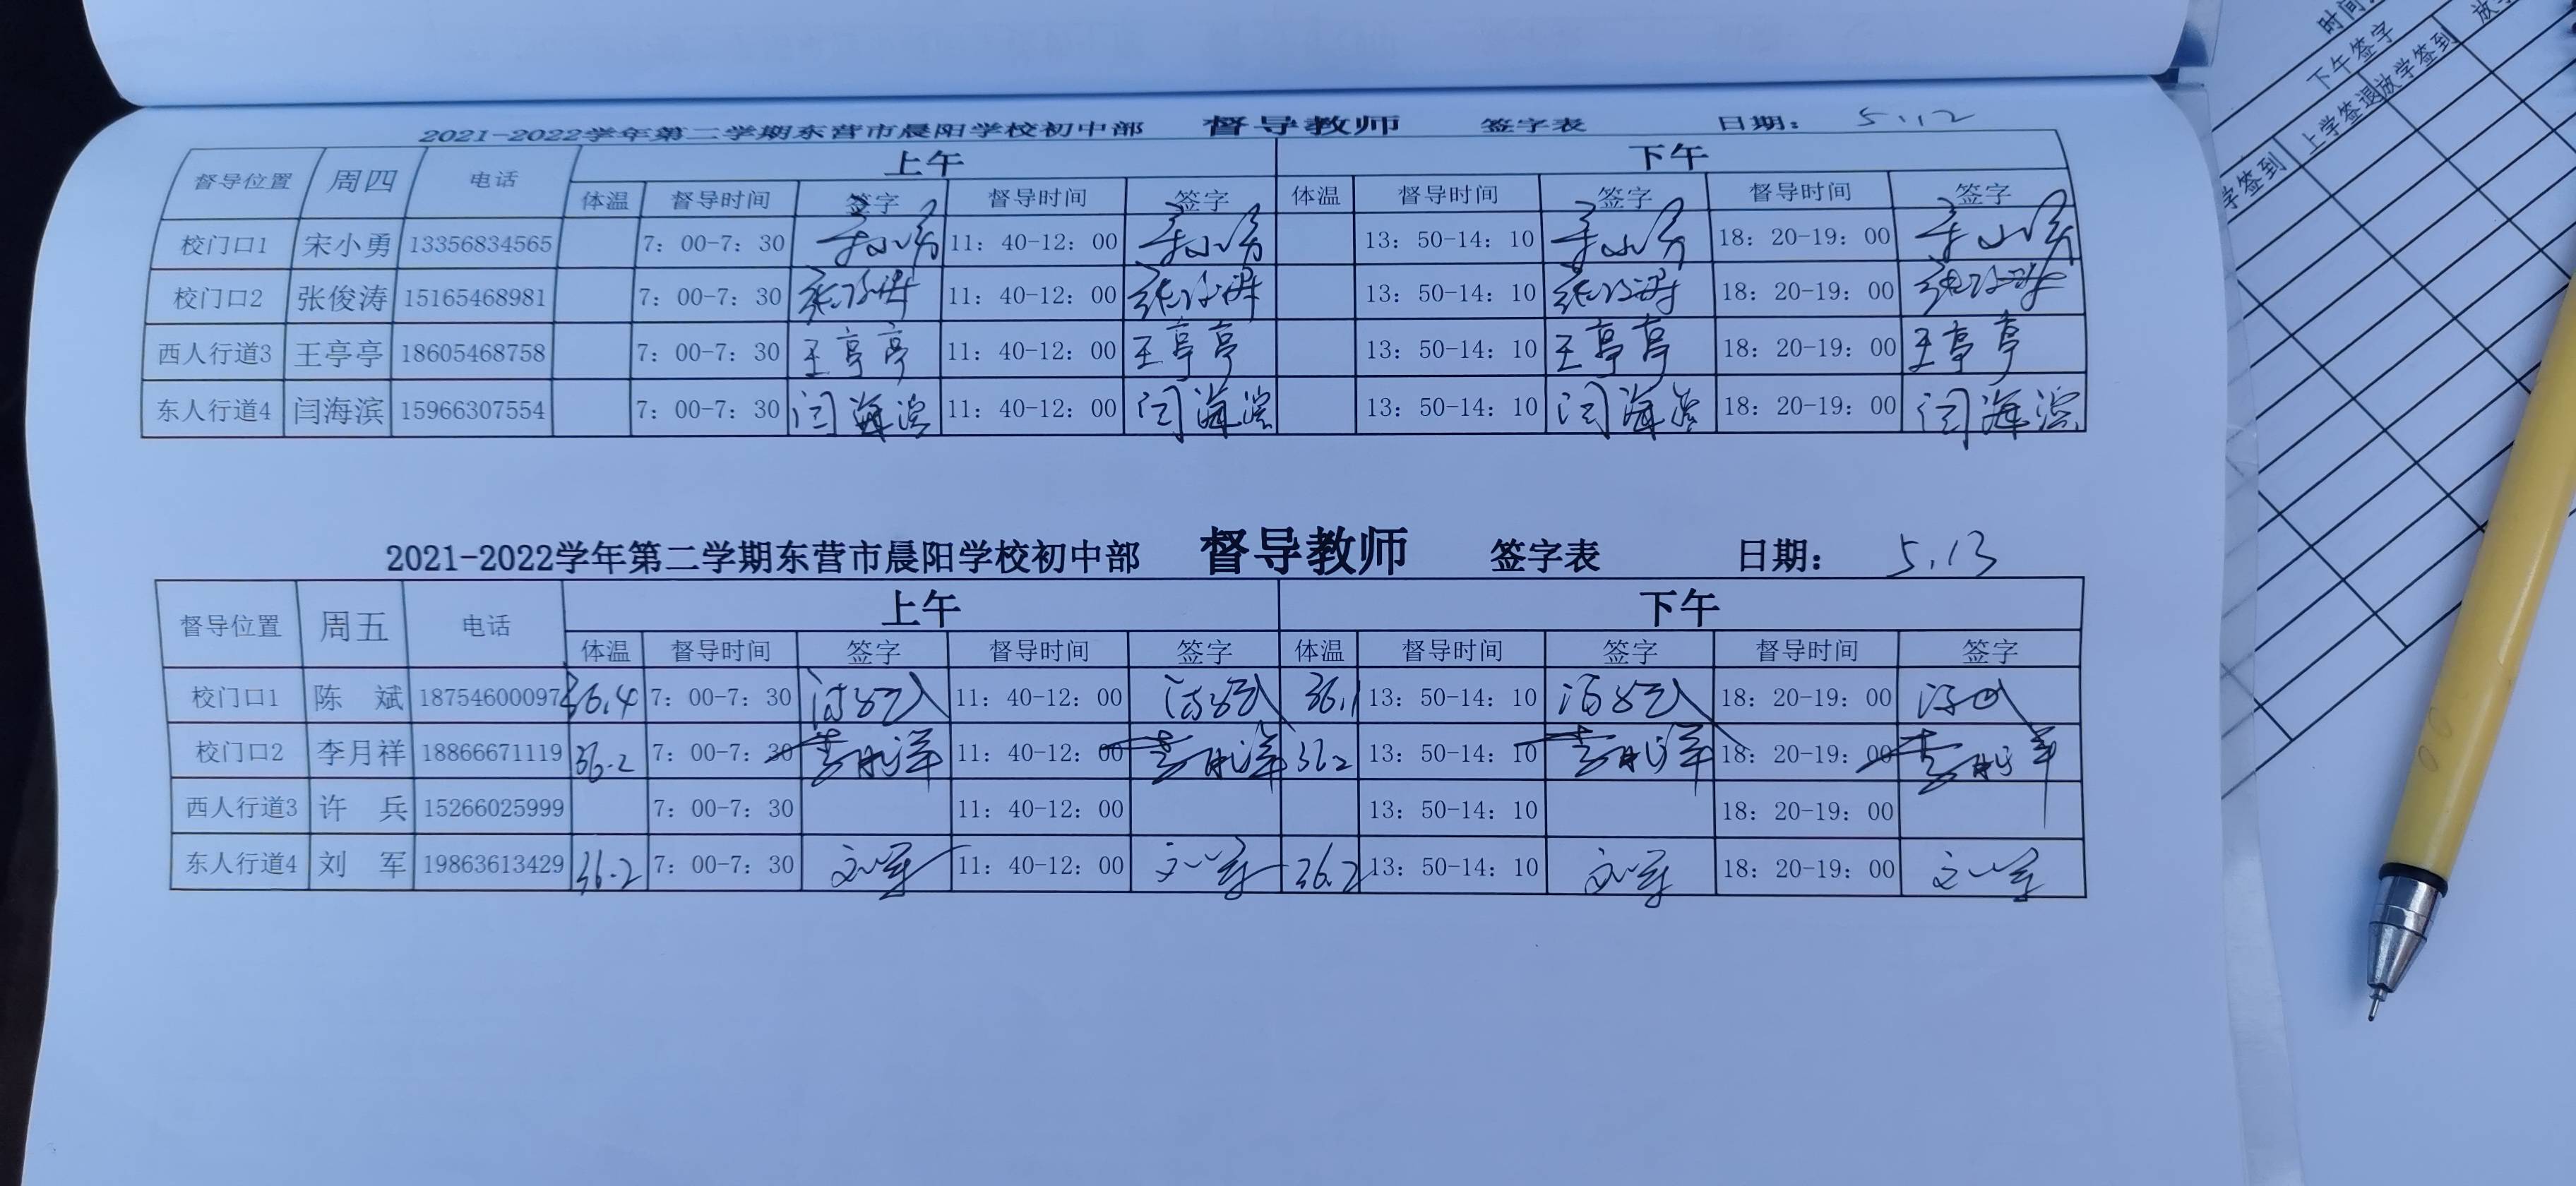 2021-2022学年第二学期东营市晨阳学校初中部 督导教师 签字表 日期: 5.12
督导位置 周四 电话 上午 下午
体温 督导时间 签字 督导时间 签字 体温 督导时间 签字 督导时间 签字
校门口1 宋小勇 13356834565 7：00-7：30 宋小勇 11：40-12：00 宋小勇 13：50-14：10 宋小勇 18：20-19：00 宋小勇
校门口2 张俊涛 15165468981 7：00-7：30 张俊涛 11：40-12：00 张俊涛 13：50-14：10 张俊涛 18：20-19：00 张俊涛
西人行道3 王亭亭 18605468758 7：00-7：30 王亭亭 11：40-12：00 王亭亭 13：50-14：10 王亭亭 18：20-19：00 王亭亭
东人行道4 闫海滨 15966307554 7：00-7：30 闫海滨 11：40-12：00 闫海滨 13：50-14：10 闫海滨 18：20-19：00 闫海滨
2021-2022学年第二学期东营市晨阳学校初中部 督导教师 签字表 日期： 5.13
督导位置 周五 电话 上午 下午
体温 督导时间 签字 督导时间 签字 体温 督导时间 签字 督导时间 签字
校门口1 陈 斌 18754600097 36.4 7：00-7：30 11：40-12：00 36.1 13：50-14：10 18：20-19：00
校门口2 李月祥 18866671119 36.2 7：00-7：30 李月祥 11：40-12：00 李月祥 36.2 13：50-14：10 李月祥 18：20-19：00 李月祥
西人行道3 许 兵 15266025999 7：00-7：30 11：40-12：00 13：50-14：10 18：20-19：00
东人行道4 刘 军 19863613429 36.2 7：00-7：30 刘军 11：40-12：00 刘军 36.2 13：50-14：10 刘军 18：20-19：00 刘军
时间
下午签字
学签到 上学签退 放学签到 放学